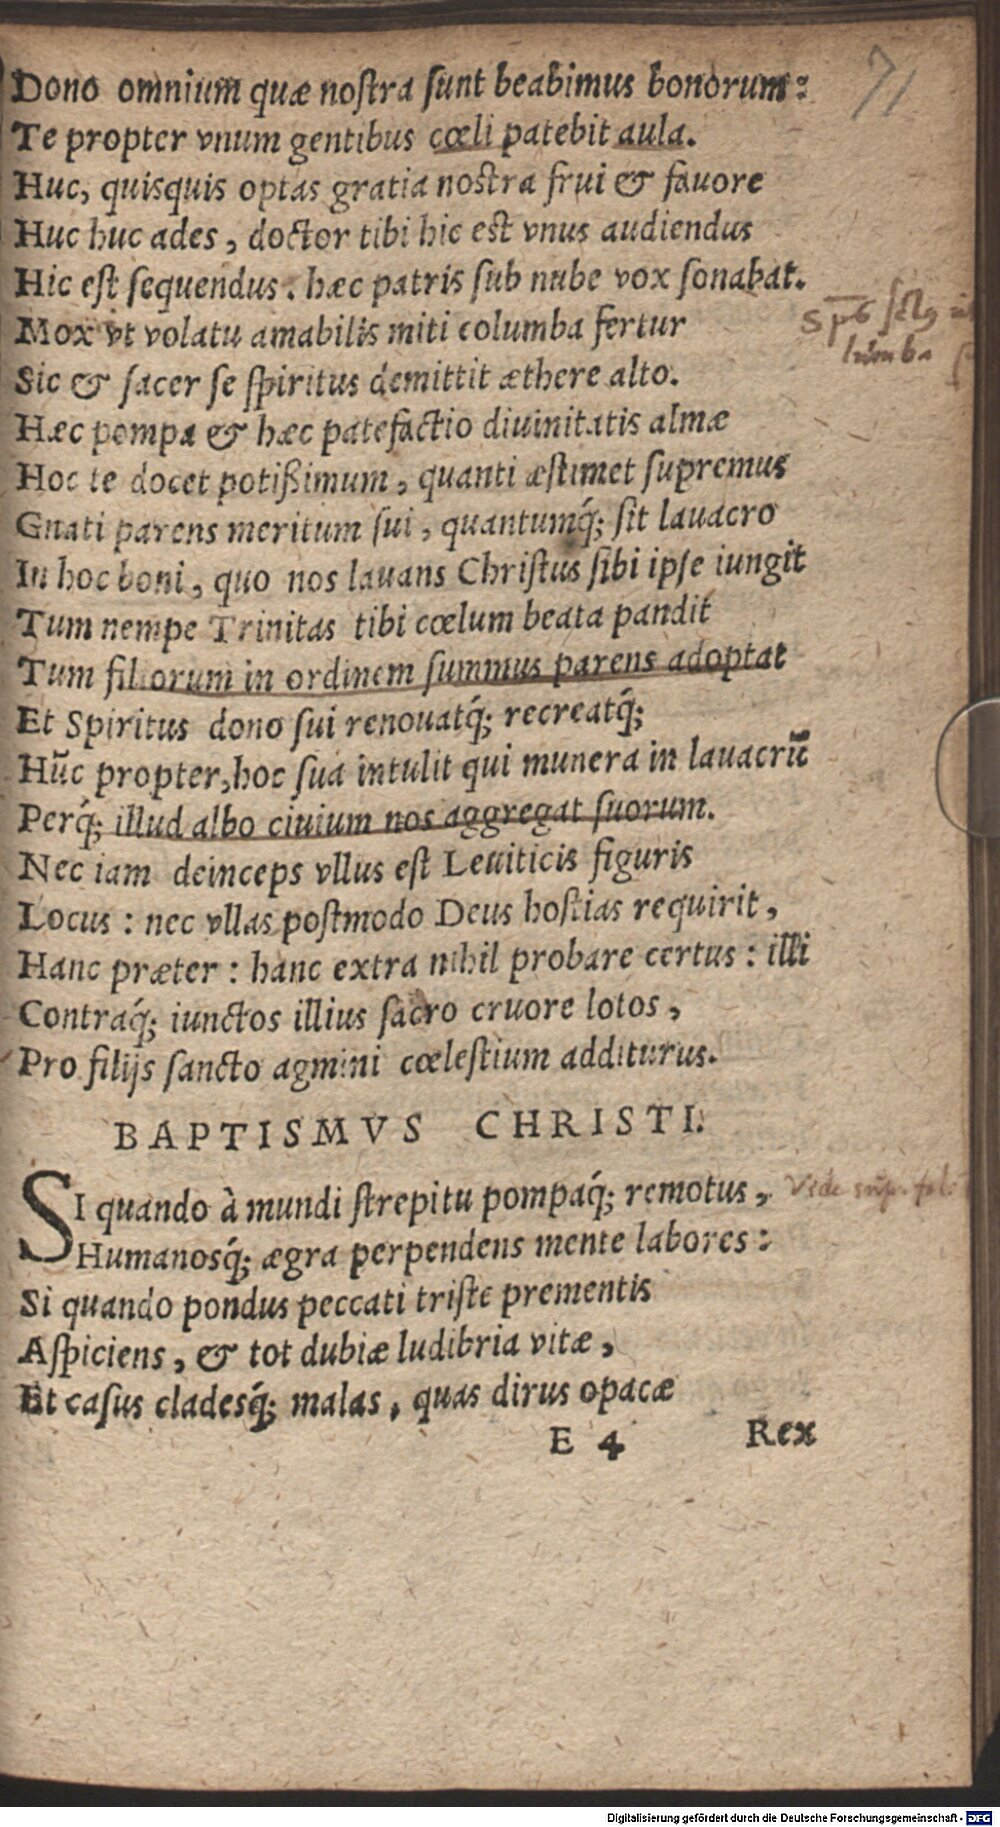 71
Dono omnium quæ noſtra ſunt beabimus bonorum:
Te propter vnum gentibus cœli patebit aula.
Huc, quisquis optas gratia noſtra frui & fauore
Huc huc ades, doctor tibi hic est vnus audiendus
Hic eſt ſequendus. hæc patris ſub nube vox ſonabat.
Mox vt volatu amabilis miti columba fertur
Sic & ſacer ſe ſpiritus demittit æthere alto.
Hæc pompa & hæc patefactio diuinitatis almæ
Hoc te docet potiſſimum, quanti æstimet ſupremus
Gnati parens meritum ſui, quantumq́; ſit lauacro
In hoc boni, quo nos lauans Chriſtus ſibi ipſe iungit
Tum nempe Trinitas tibi cœlum beata pandit
Tum filiorum in ordinem ſummus parens adoptat
Et Spiritus dono ſui renouatq́; recreatq́;
Hũc propter, hoc ſua intulit qui munera in lauacrũ
Perq́; illud albo ciuium nos aggregat ſuorum.
Nec iam deinceps vllus eſt Leuiticis figuris
Locus: nec vllas poſtmodo Deus hoſtias requirit,
Hanc præter: hanc extra nihil probare certus: illi
Contraq́; iunctos illius ſacro cruore lotos,
Pro filijs ſancto agmini cœleſtium additurus.
BAPTISMVS CHRISTI.
SI quando à mundi ſtrepitu pompaq́; remotus,
Humanosq́; ægra perpendens mente labores:
Si quando pondus peccati triſte prementis
Aſpiciens, & tot dubiæ ludibria vitæ,
Et caſus cladesq́; malas, quas dirus opacæ
E 4 Rex
Vide
Digitalisierung gefördert durch die Deutsche Forschungsgemeinschaft - DFG